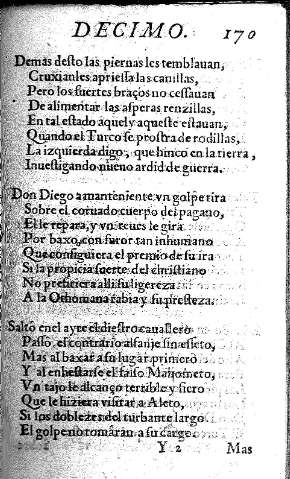 DECIMO. 170
Demas desto las piernas les temblauan,
Cruxianles apriessa las canillas,
Pero los fuertes braços no cessauan
De alimentar las asperas renzillas,
En tal estado aquel y aqueste estauan,
Quando el Turco se prostra de rodillas,
La izquierda digo, que hinco en la tierra,
Inuestigando nueuo ardid de guerra.
Don Diego a manteniente vn golpe tira
Sobre el coruado cuerpo del pagano,
El le repara, y vn reues le gira
Por baxo, con furor tan inhumano
Que consiguiera el premio de su ira
Si la propicia suerte del christiano
No prefiriera alli su ligereza
A la Othomana rabia y su presteza.
Saltò en el ayre el diestro cauallero
Passo, el contrario alfanje sin efeto,
Mas al baxar a su lugar primero
Y al enhestarse el falso Mahometo,
Vn tajo le alcançò terrible y fiero
Que le hiziera visitar a Aleto,
Si los doblezes del turbante largo
El golpe no tomaran a su cargo.
Y 2 Mas